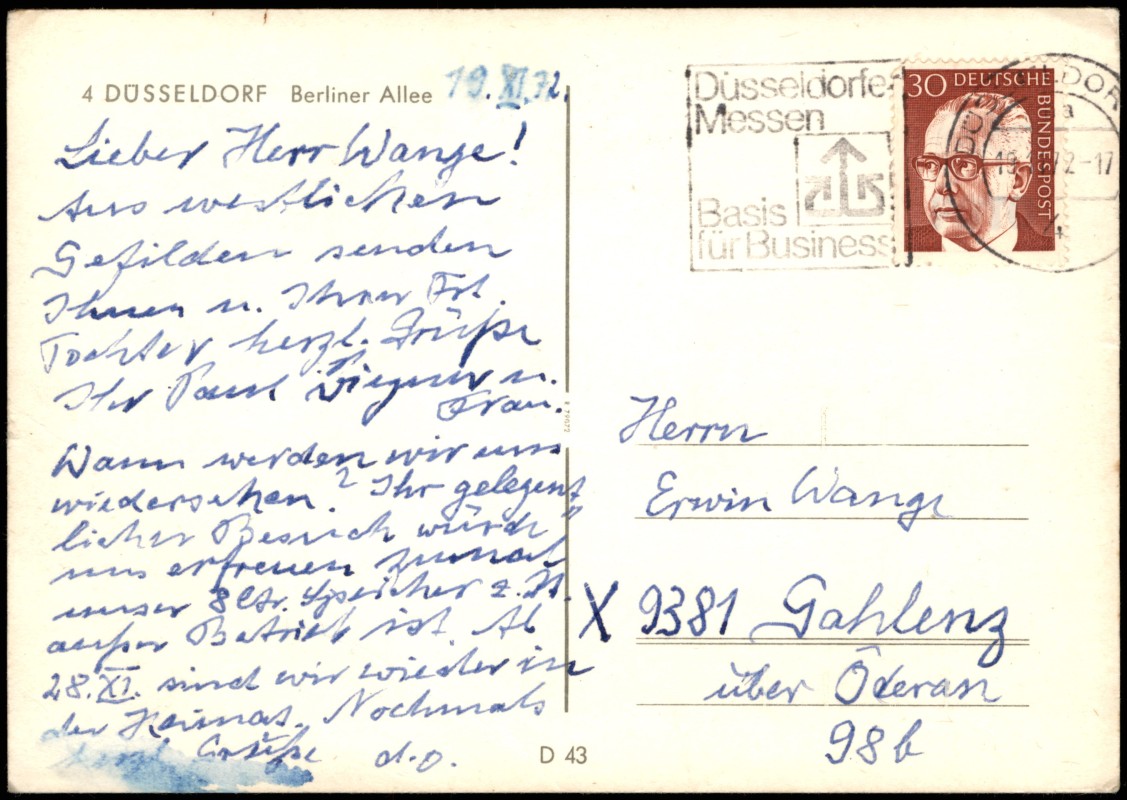 4 DÜSSELDORF Berliner Allee
19.XI.72.
Lieber Herr Wange!
Aus westlichen
Gefilden senden
Ihnen u. Ihrer Frl.
Tochter herzl. Grüße
Ihr Paul u.
Frau.
Wann werden wir uns
wiedersehen? Ihr gelegent-
licher Besuch würde
uns erfreuen zumal
unser 8 Ltr. Speicher z. Zt.
außer Betrieb ist. Ab
28.XI. sind wir wieder in
der Heimat. Nochmals
herzl. Grüße d.o.
D 43
Düsseldorfer
Messen
Basis
für Business
30 DEUTSCHE
BUNDESPOST
a
72-17
4
Herrn
Erwin Wange
X 9381 Gahlenz
über Öderan
98b